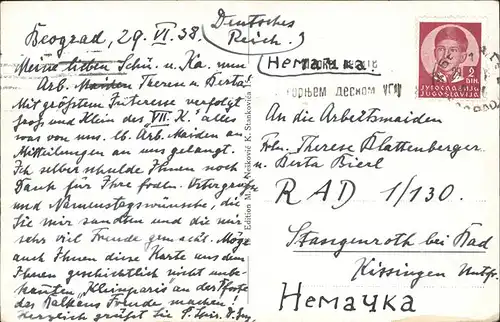 Beograd, 29. VI. 38.
Meine lieben Schü. u. Ka. nun
Arb. Maiden Theres u. Berta!
Mit größtem Interesse verfolgt
groß und Klein des VIII. K. alles
was von uns. lb. Arb. Maiden an
Mitteilungen an uns gelangt.
Ich selber schulde Ihnen noch
Dank für Ihre Ostergrüße
und Namenstagswünsche, die
Sie mir sandten und die mir
sehr viel Freude gemacht. Möge
auch Ihnen diese Karte aus dem
Ihnen geschichtlich nicht unbe-
kannten „Kleinparis" an der Pforte
des Balkans Freude machen!
Herzlich grüßt Sie
Deutsches
Reich.
Немачка.
ДЕСНОМ
ЈУГОСЛАВИЈА
JUGOSLAVIJA
2
DIN.
Edition M. Nešković K. Stankovića
An die Arbeitsmaiden
Frln. Therese Blattenberger
u. Berta Bierl
RAD 1/130.
Stangenroth bei Bad
Kissingen Untfr.
Немачка